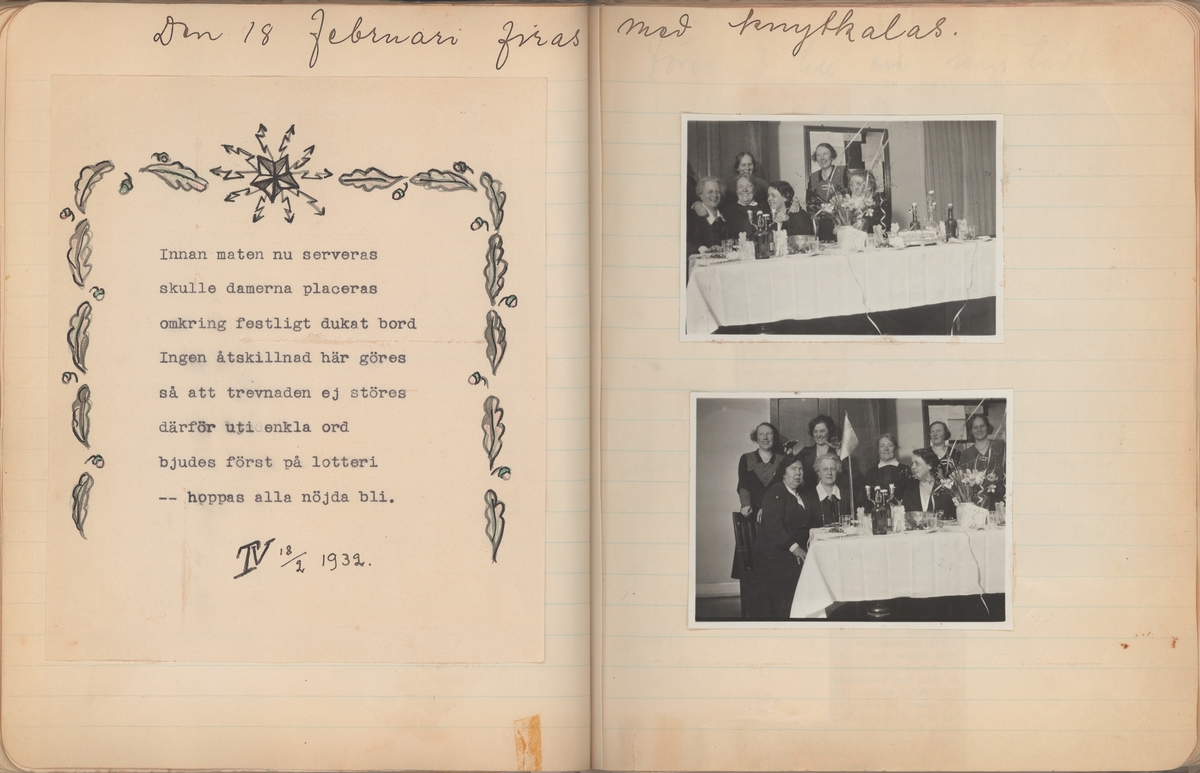 Den 18 Februari firas med knytkalas.
Innan maten nu serveras
skulle damerna placeras
omkring festligt dukat bord
Ingen åtskillnad här göres
så att trevnaden ej störes
därför uti enkla ord
bjudes först på lotteri
-- hoppas alla nöjda bli.
IV 18/2 1932.